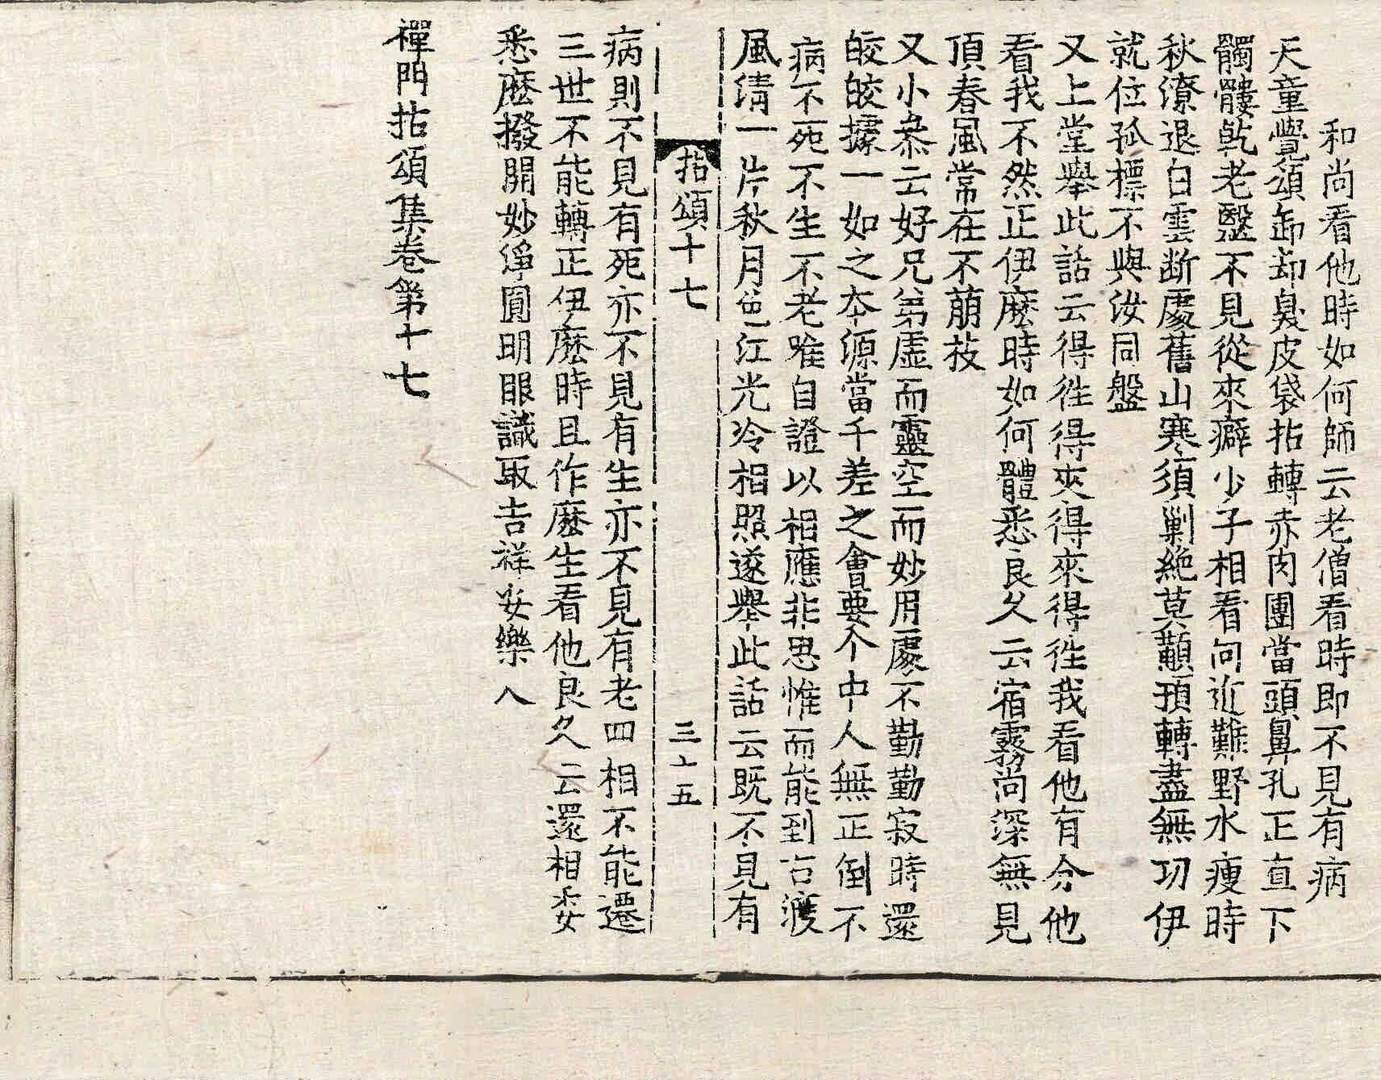 和尚看他時如何師云老僧看時即不見有病
天童覺頌卸却臭皮袋拈轉赤肉團當頭鼻孔正直下
髑髏乾老醫不見從來癖少子相看向近難野水瘦時
秋潦退白雲断處舊山寒須剿絶莫顢頇轉盡無功伊
就位孤標不與汝同盤
又上堂舉此話云得徃得來得來得徃我看他有分他
看我不然正伊麽時如何體悉良久云宿霧尚深無見
頂春風常在不萠枝
又小叅云好兄弟虚而靈空而妙用處不勤勤寂時還
皎皎據一如之本源當千差之會要个中人無正倒不
病不死不生不老唯自證以相應非思惟而能到古渡
風清一片秋月色江光冷相照遂舉此話云既不見有
拈頌十七
三十五
病則不見有死亦不見有生亦不見有老四相不能遷
三世不能轉正伊麽時且作麽生看他良久云還相委
悉麽撥開妙淨圓明眼識取吉祥安樂人
禪門拈頌集卷第十七